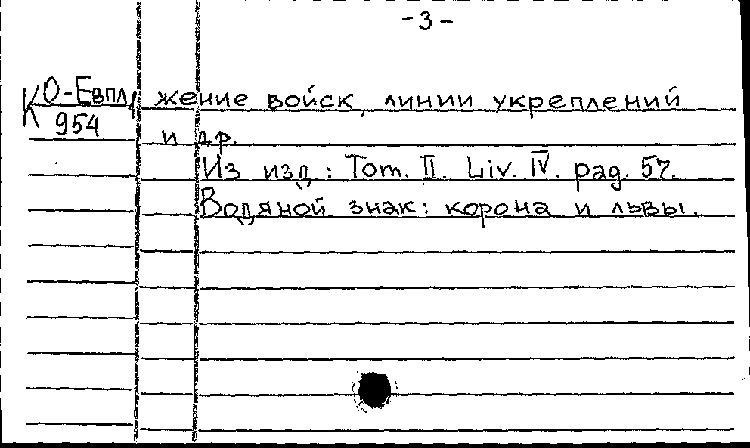 -3-
К О-Евпл 1
954
жение войск, линии укреплений
и др.
Из изд: Tom. II. Liv. IV. pag. 57.
Водяной знак: корона и львы.